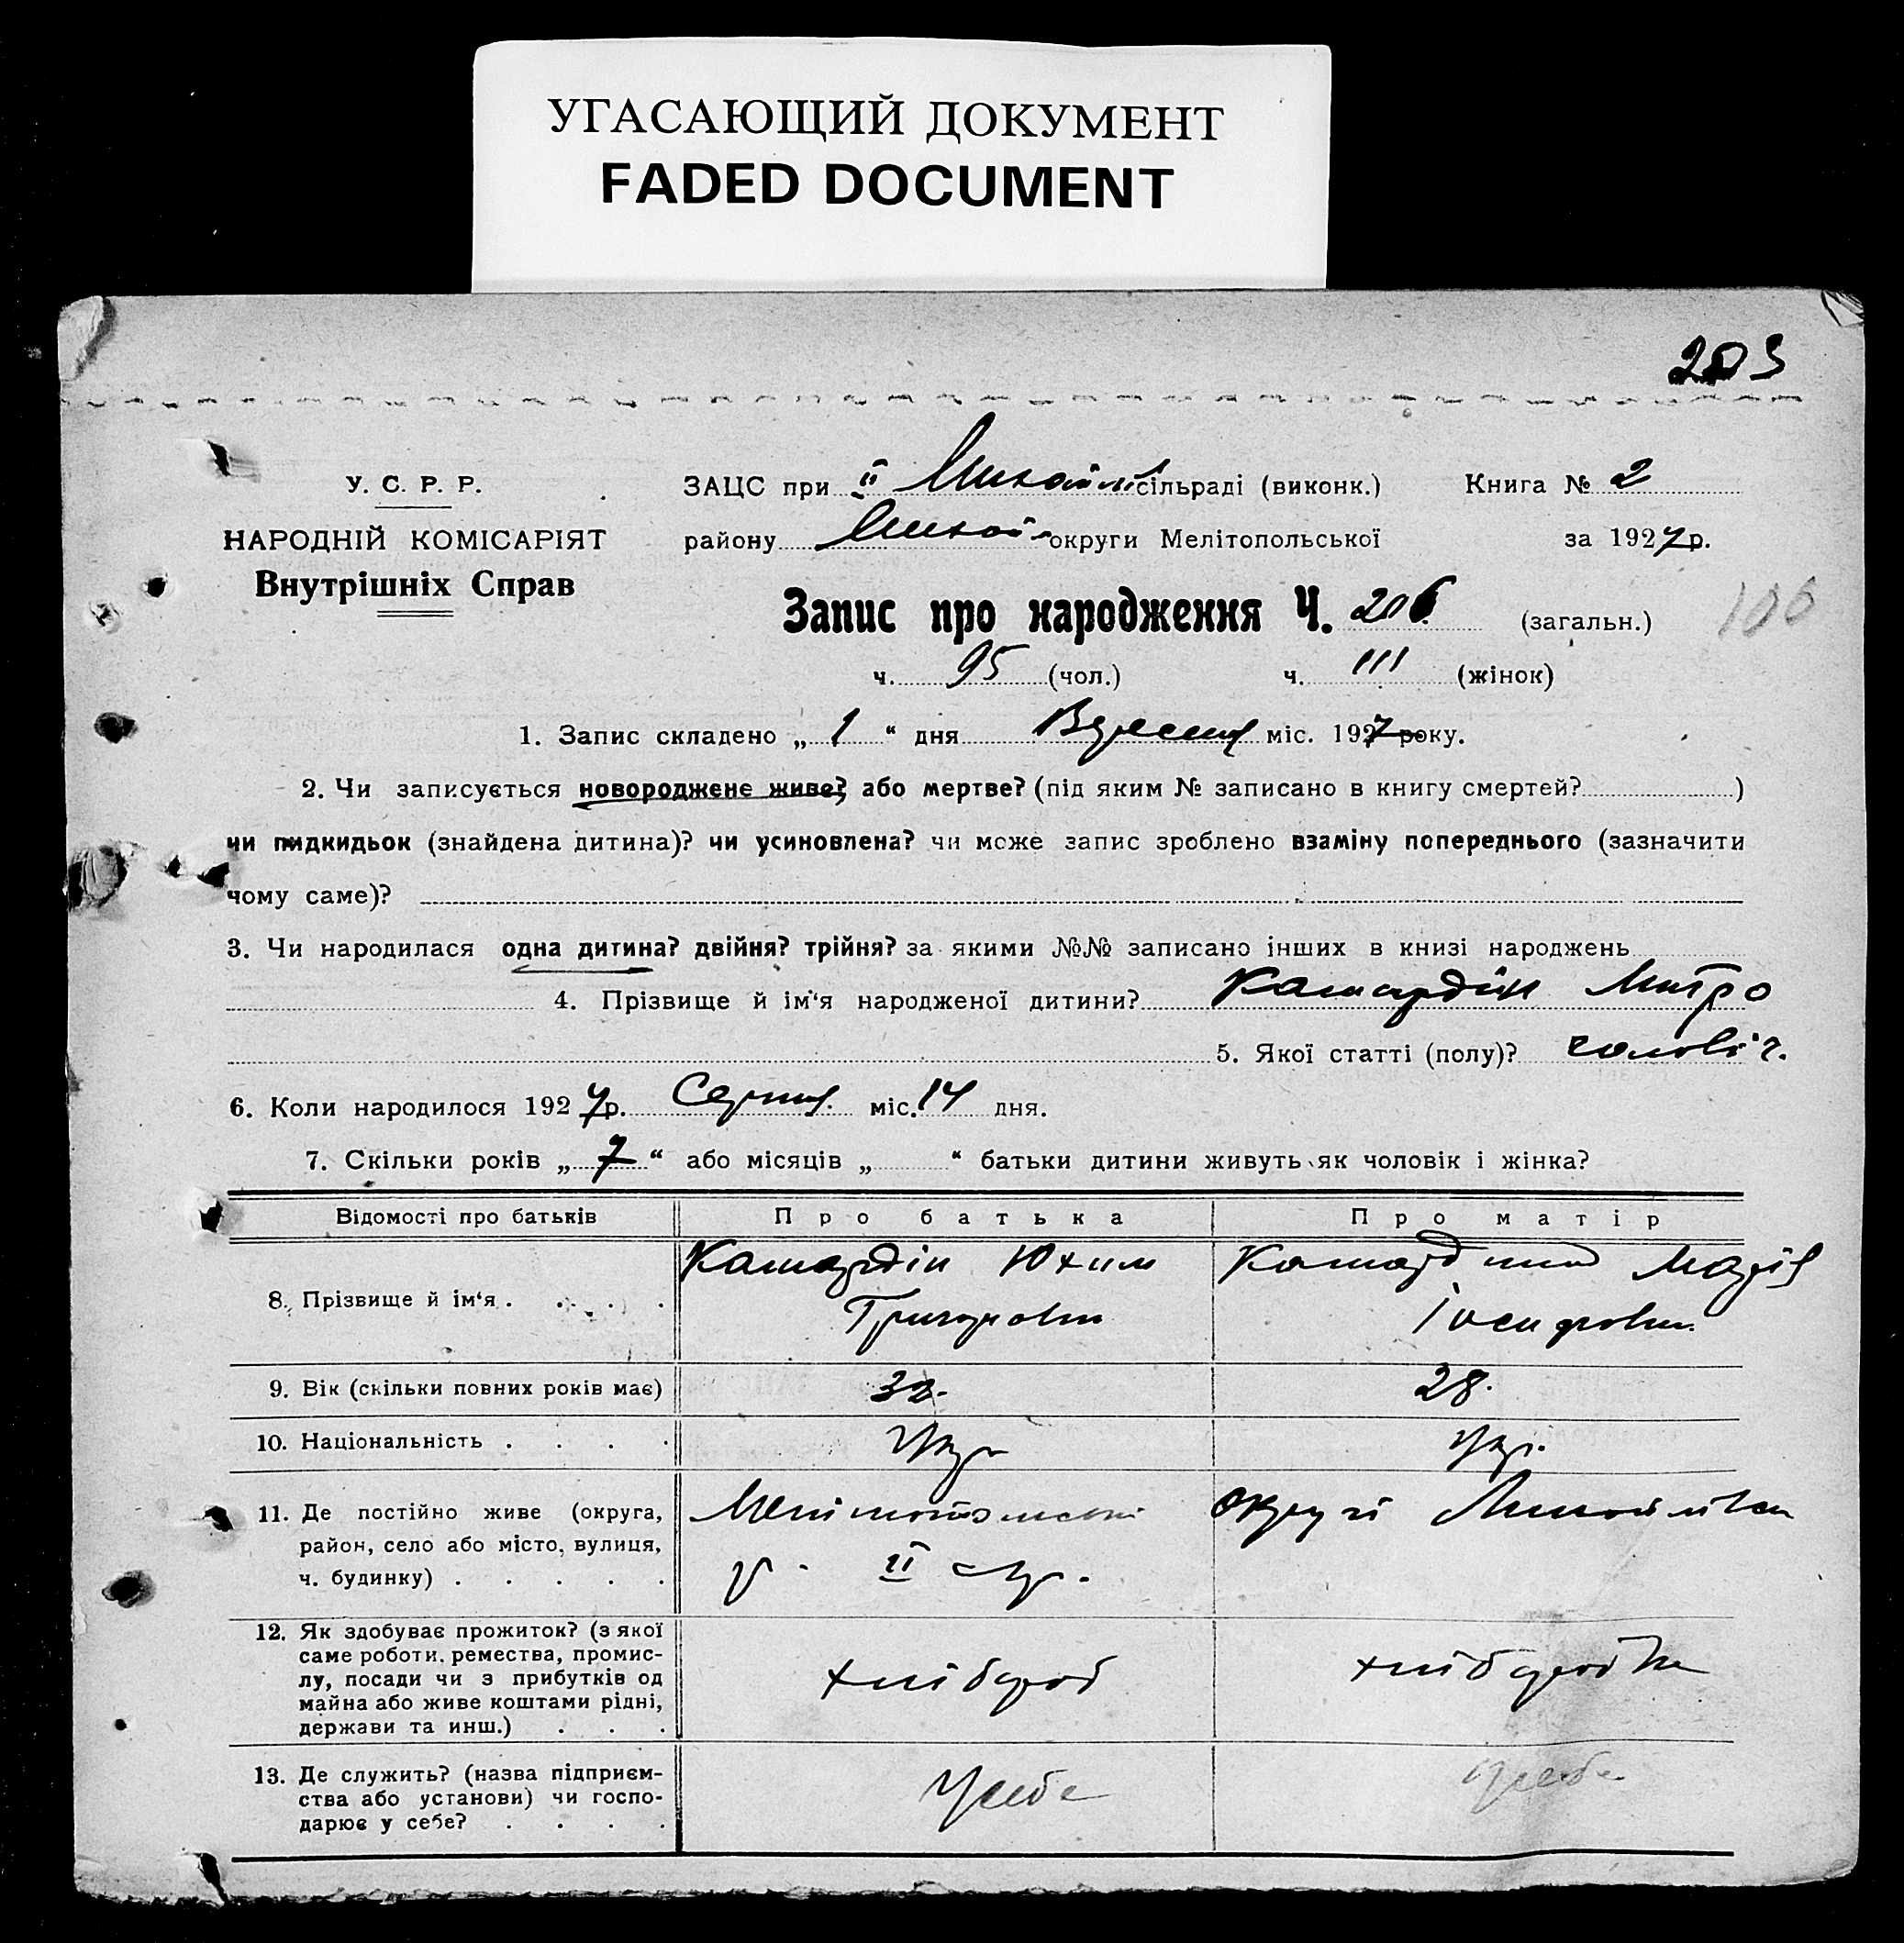 УГАСАЮЩИЙ ДОКУМЕНТ
FADED DOCUMENT
203
У. С. Р. Р.
НАРОДНІЙ КОМІСАРІЯТ
Внутрішніх Справ
ЗАЦС при II Михайл сільраді (виконк.) Книга № 2
району Михайл округи Мелітопольської за 1927 р.
Запис про народження Ч. 206 (загальн.) 106
ч. 95 (чол.) ч. 111 (жінок)
1. Запис складено „ 1 “ дня Вересня міс. 1927 року.
2. Чи записується новороджене живе? або мертве? (під яким № записано в книгу смертей? )
чи пидкидьок (знайдена дитина)? чи усиновлена? чи може запис зроблено взаміну попереднього (зазначити
чому саме)?
3. Чи народилася одна дитина? двійня? трійня? за якими №№ записано інших в книзі народжень
4. Прізвище й ім‘я народженої дитини? Кашардін Митро
5. Якої статті (полу)? чоловіч.
6. Коли народилося 1927 р. Серпня міс. 14 дня.
7. Скільки років „ 7 “ або місяців „ “ батьки дитини живуть як чоловік і жінка?
Відомості про батьків Про батька Про матір
8. Прізвище й ім‘я . . . . Кашардін Юхим Кашардина Марія
Григорович Іосиповна
9. Вік (скільки повних років має) 32. 28.
10. Національність . . . . Укр Укр.
11. Де постійно живе (округа,
район, село або місто, вулиця,
ч. будинку) . . . . .
Мелітопольські округи Михайлівськ
р. II с/р.
12. Як здобуває прожиток? (з якої
саме роботи, ремества, промис-
лу, посади чи з прибутків од
майна або живе коштами рідні,
держави та инш.) . . .
хлібороб хліборобка
13. Де служить? (назва підприєм-
ства або установи) чи госпо-
дарює у себе? . . . .
У себе У себе